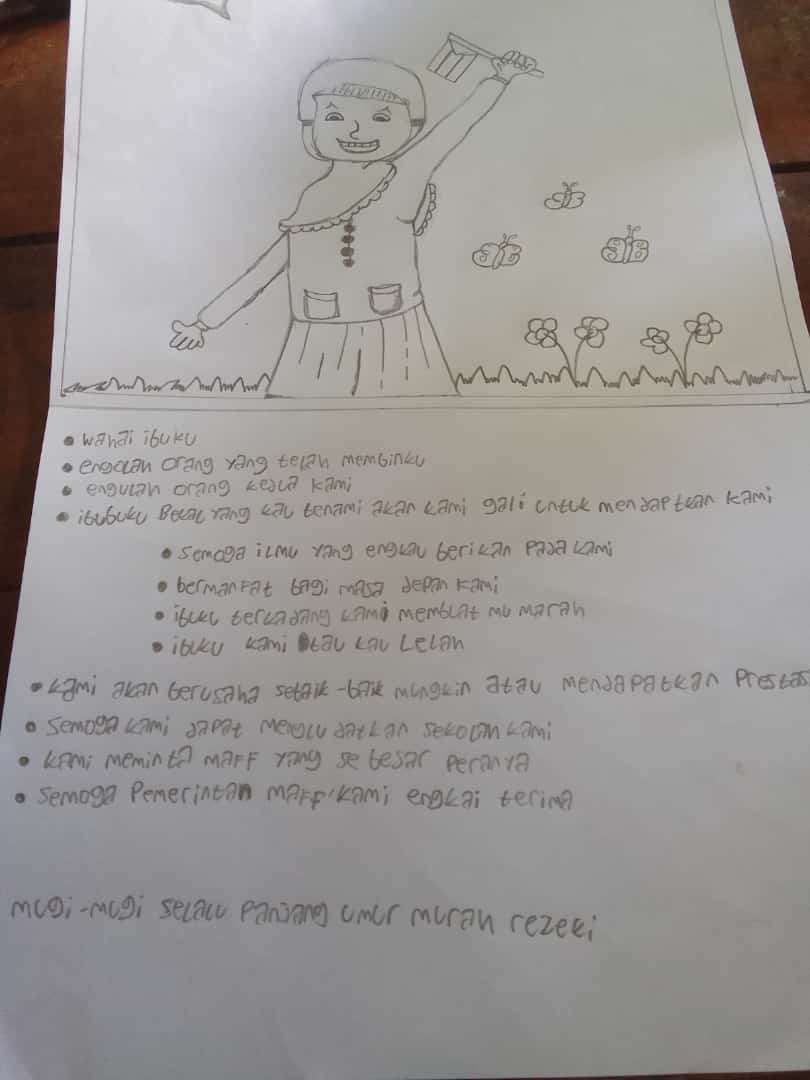 wahai ibuku
engolah orang yang telah membinku
engulah orang kedua kami
itubuku Bekal yang kau tenami akan kami gali untuk mendaptkan kami
semoga ilmu yang engkau berikan pada kami
bermanfat bagi masa depan kami
ibuku terkadang kami membuat mu marah
ibuku kami tau kau Lelah
kami akan berusaha sebaik-baik mungkin atau mendapatkan Prestas
semoga kami dapat mengludatkan sekolah kami
kami meminta maff yang se besar peranya
semoga Pemerintah maff kami engkai terima
mugi-mugi selalu panjang umur murah rezeki